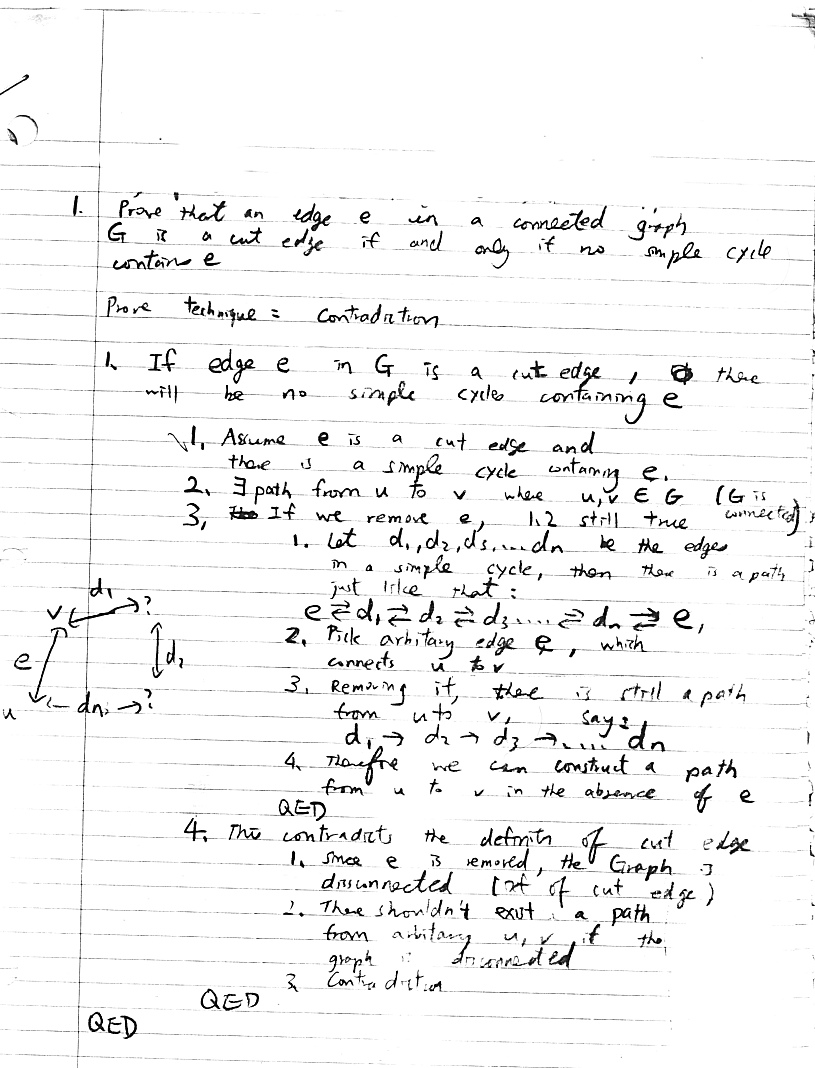 1. Prove that an edge e in a connected graph
G is a cut edge if and only if no simple cycle
contains e
Prove technique = Contradiction
1. If edge e in G is a cut edge, there
will be no simple cycles containing e
1. Assume e is a cut edge and
there is a simple cycle containing e.
2. ∃ path from u to v where u, v ∈ G (G is connected)
3. If we remove e, 1.2 still true
1. Let d1, d2, d3, ... dn be the edges
in a simple cycle, then there is a path
just like that:
e ⇄ d1 ⇄ d2 ⇄ d3 .... ⇄ dn ⇄ e,
2. Pick arbitary edge e, which
connects u to v
3. Removing it, there is still a path
from u to v, say:
d1 → d2 → d3 → .... dn
4. Therefre we can construct a path
from u to v in the absence of e
QED
v d1 ?
e d2
u dn ?
4. This contradicts the definitn of cut edge
1. Since e is removed, the Graph is
disconnected ( of cut edge)
2. There shouldn't exist a path
from arbitary u, v if the
graph is disconnected
3. Contradiction
QED
QED